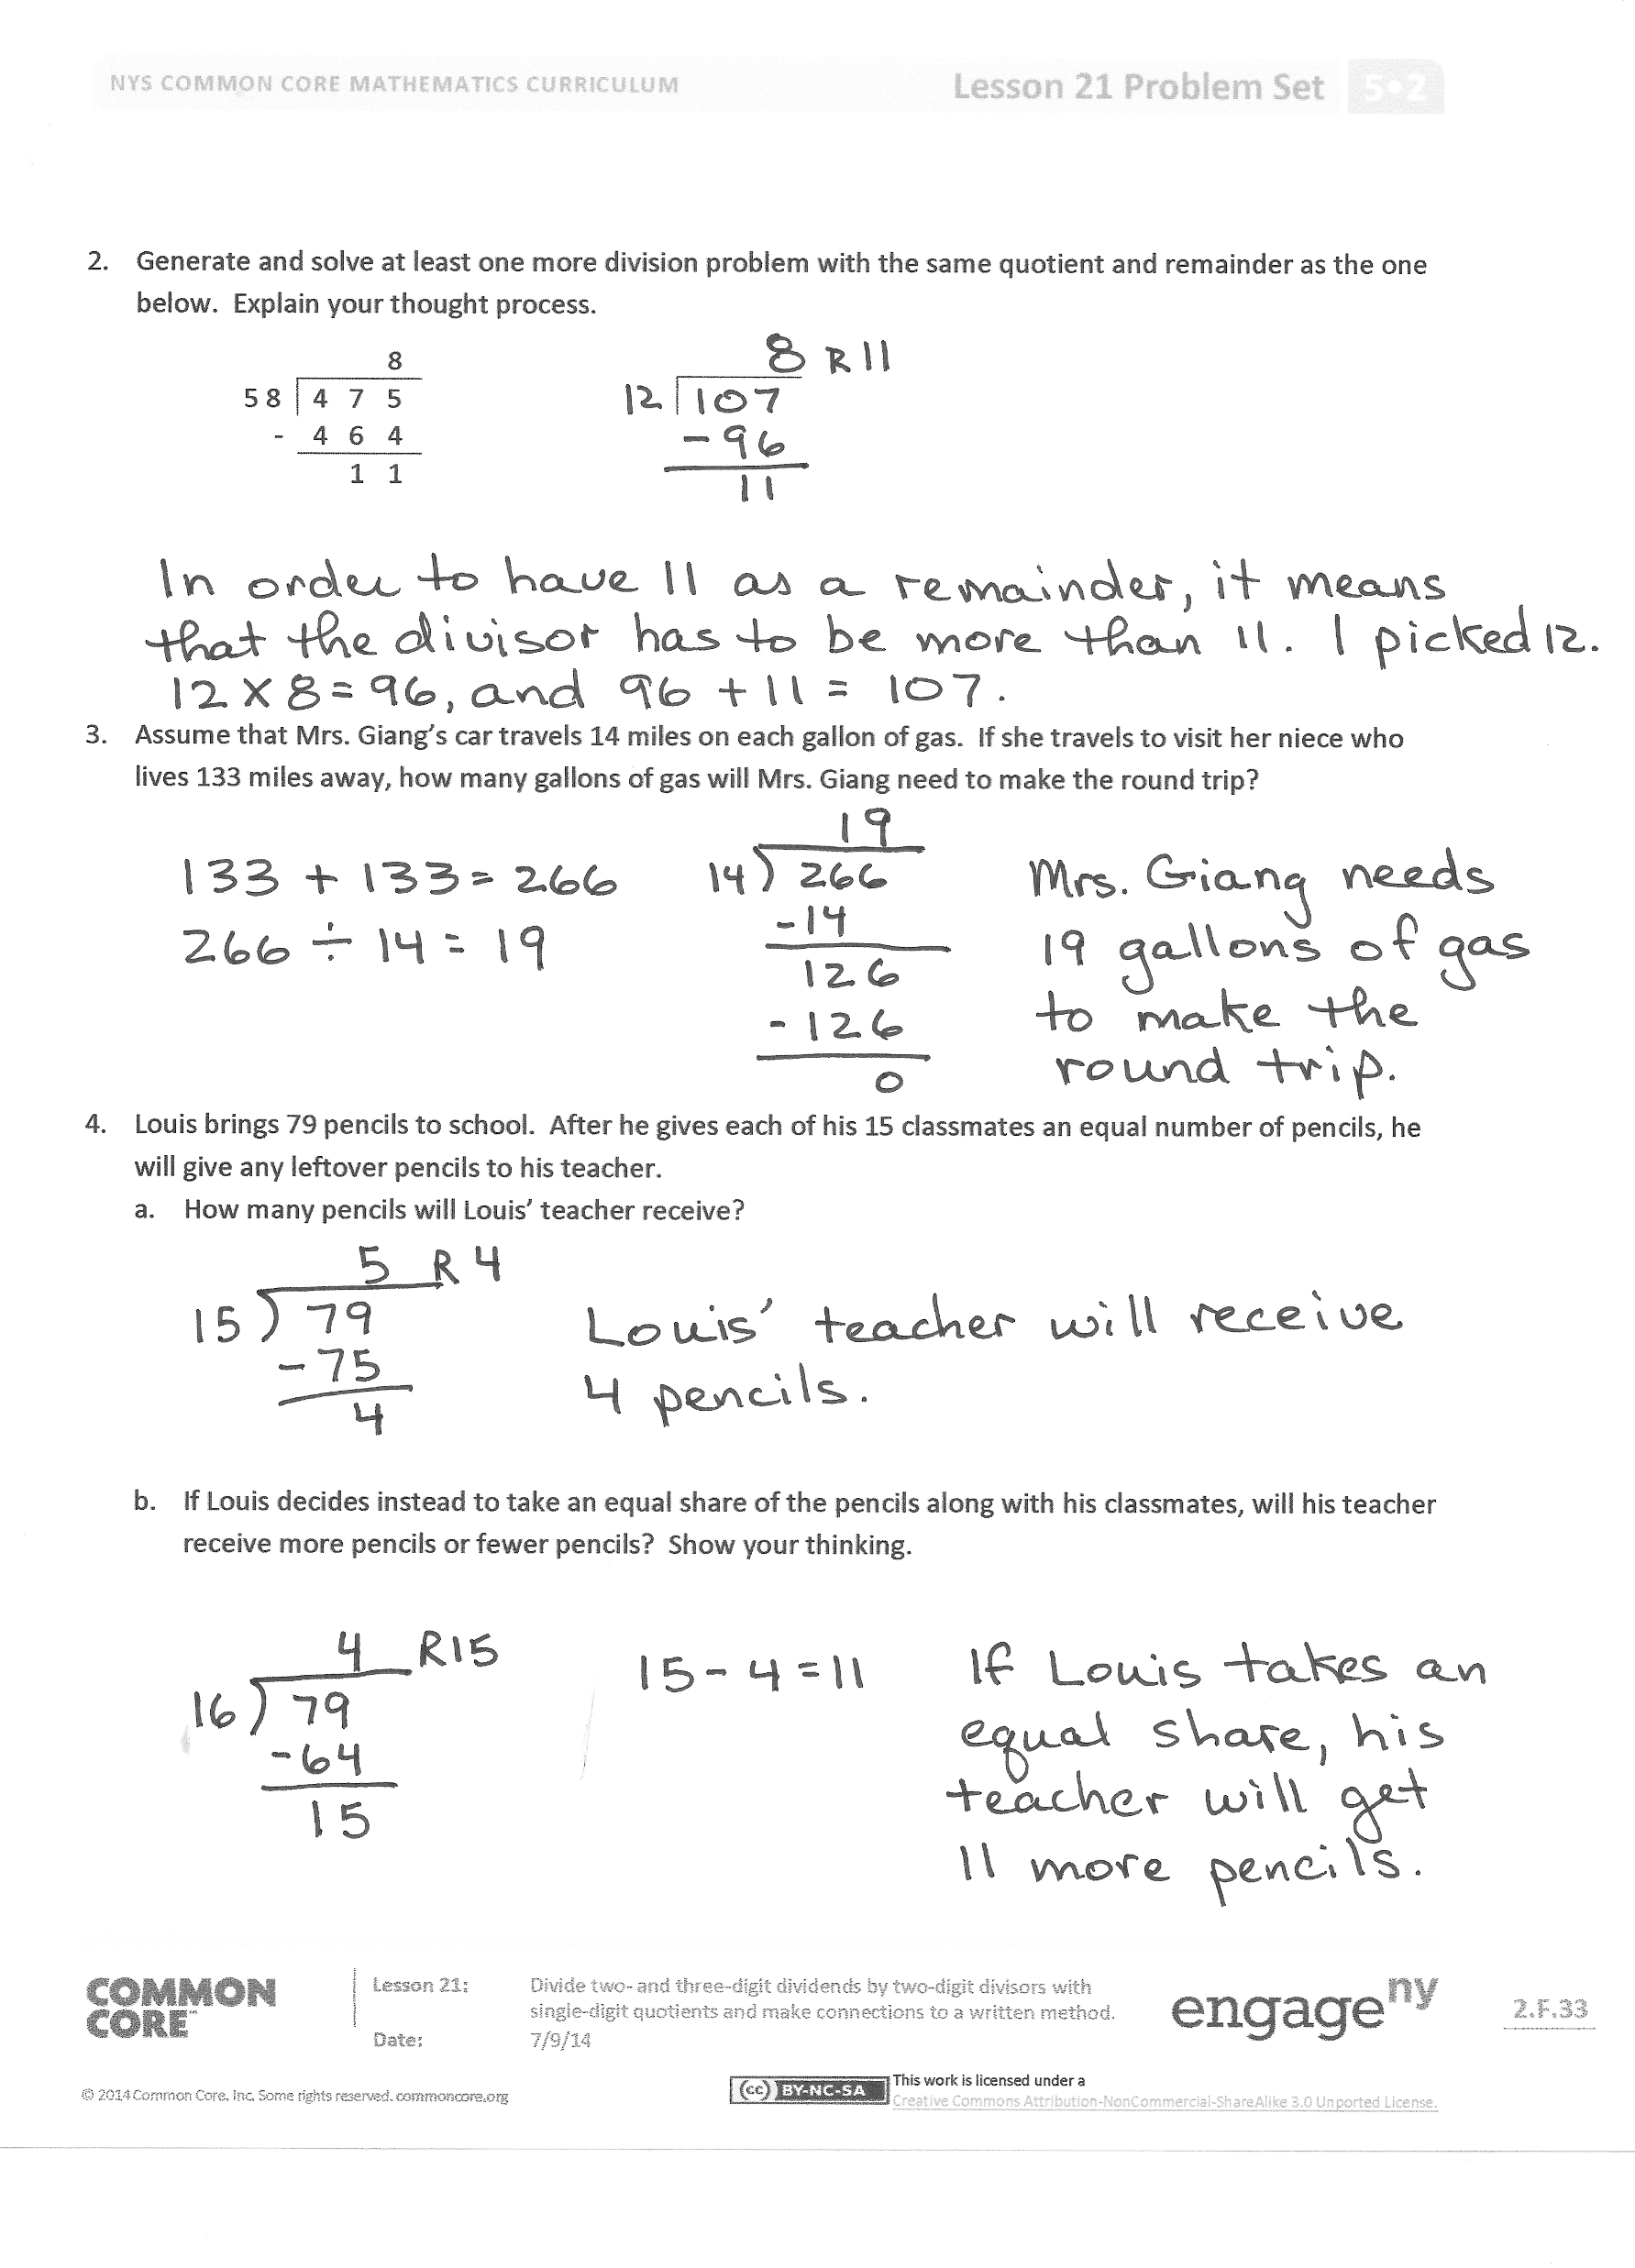 NYS COMMON CORE MATHEMATICS CURRICULUM Lesson 21 Problem Set 5•2
2. Generate and solve at least one more division problem with the same quotient and remainder as the one
below. Explain your thought process.
8
58 4 7 5
- 4 6 4
1 1
8 R 11
12 107
-96
11
In order to have 11 as a remainder, it means
that the divisor has to be more than 11. I picked 12.
12 x 8 = 96, and 96 + 11 = 107.
3. Assume that Mrs. Giang's car travels 14 miles on each gallon of gas. If she travels to visit her niece who
lives 133 miles away, how many gallons of gas will Mrs. Giang need to make the round trip?
133 + 133 = 266
266 ÷ 14 = 19
19
14) 266
-14
126
-126
0
Mrs. Giang needs
19 gallons of gas
to make the
round trip.
4. Louis brings 79 pencils to school. After he gives each of his 15 classmates an equal number of pencils, he
will give any leftover pencils to his teacher.
a. How many pencils will Louis' teacher receive?
5 R 4
15) 79
-75
4
Louis' teacher will receive
4 pencils.
b. If Louis decides instead to take an equal share of the pencils along with his classmates, will his teacher
receive more pencils or fewer pencils? Show your thinking.
4 R15
16) 79
-64
15
15 - 4 = 11
If Louis takes an
equal share, his
teacher will get
11 more pencils.
COMMON
CORE™
Lesson 21: Divide two- and three-digit dividends by two-digit divisors with
single-digit quotients and make connections to a written method.
Date: 7/9/14
engage ny
2.F.33
© 2014 Common Core, Inc. Some rights reserved. commoncore.org
cc BY-NC-SA
This work is licensed under a
Creative Commons Attribution-NonCommercial-ShareAlike 3.0 Unported License.